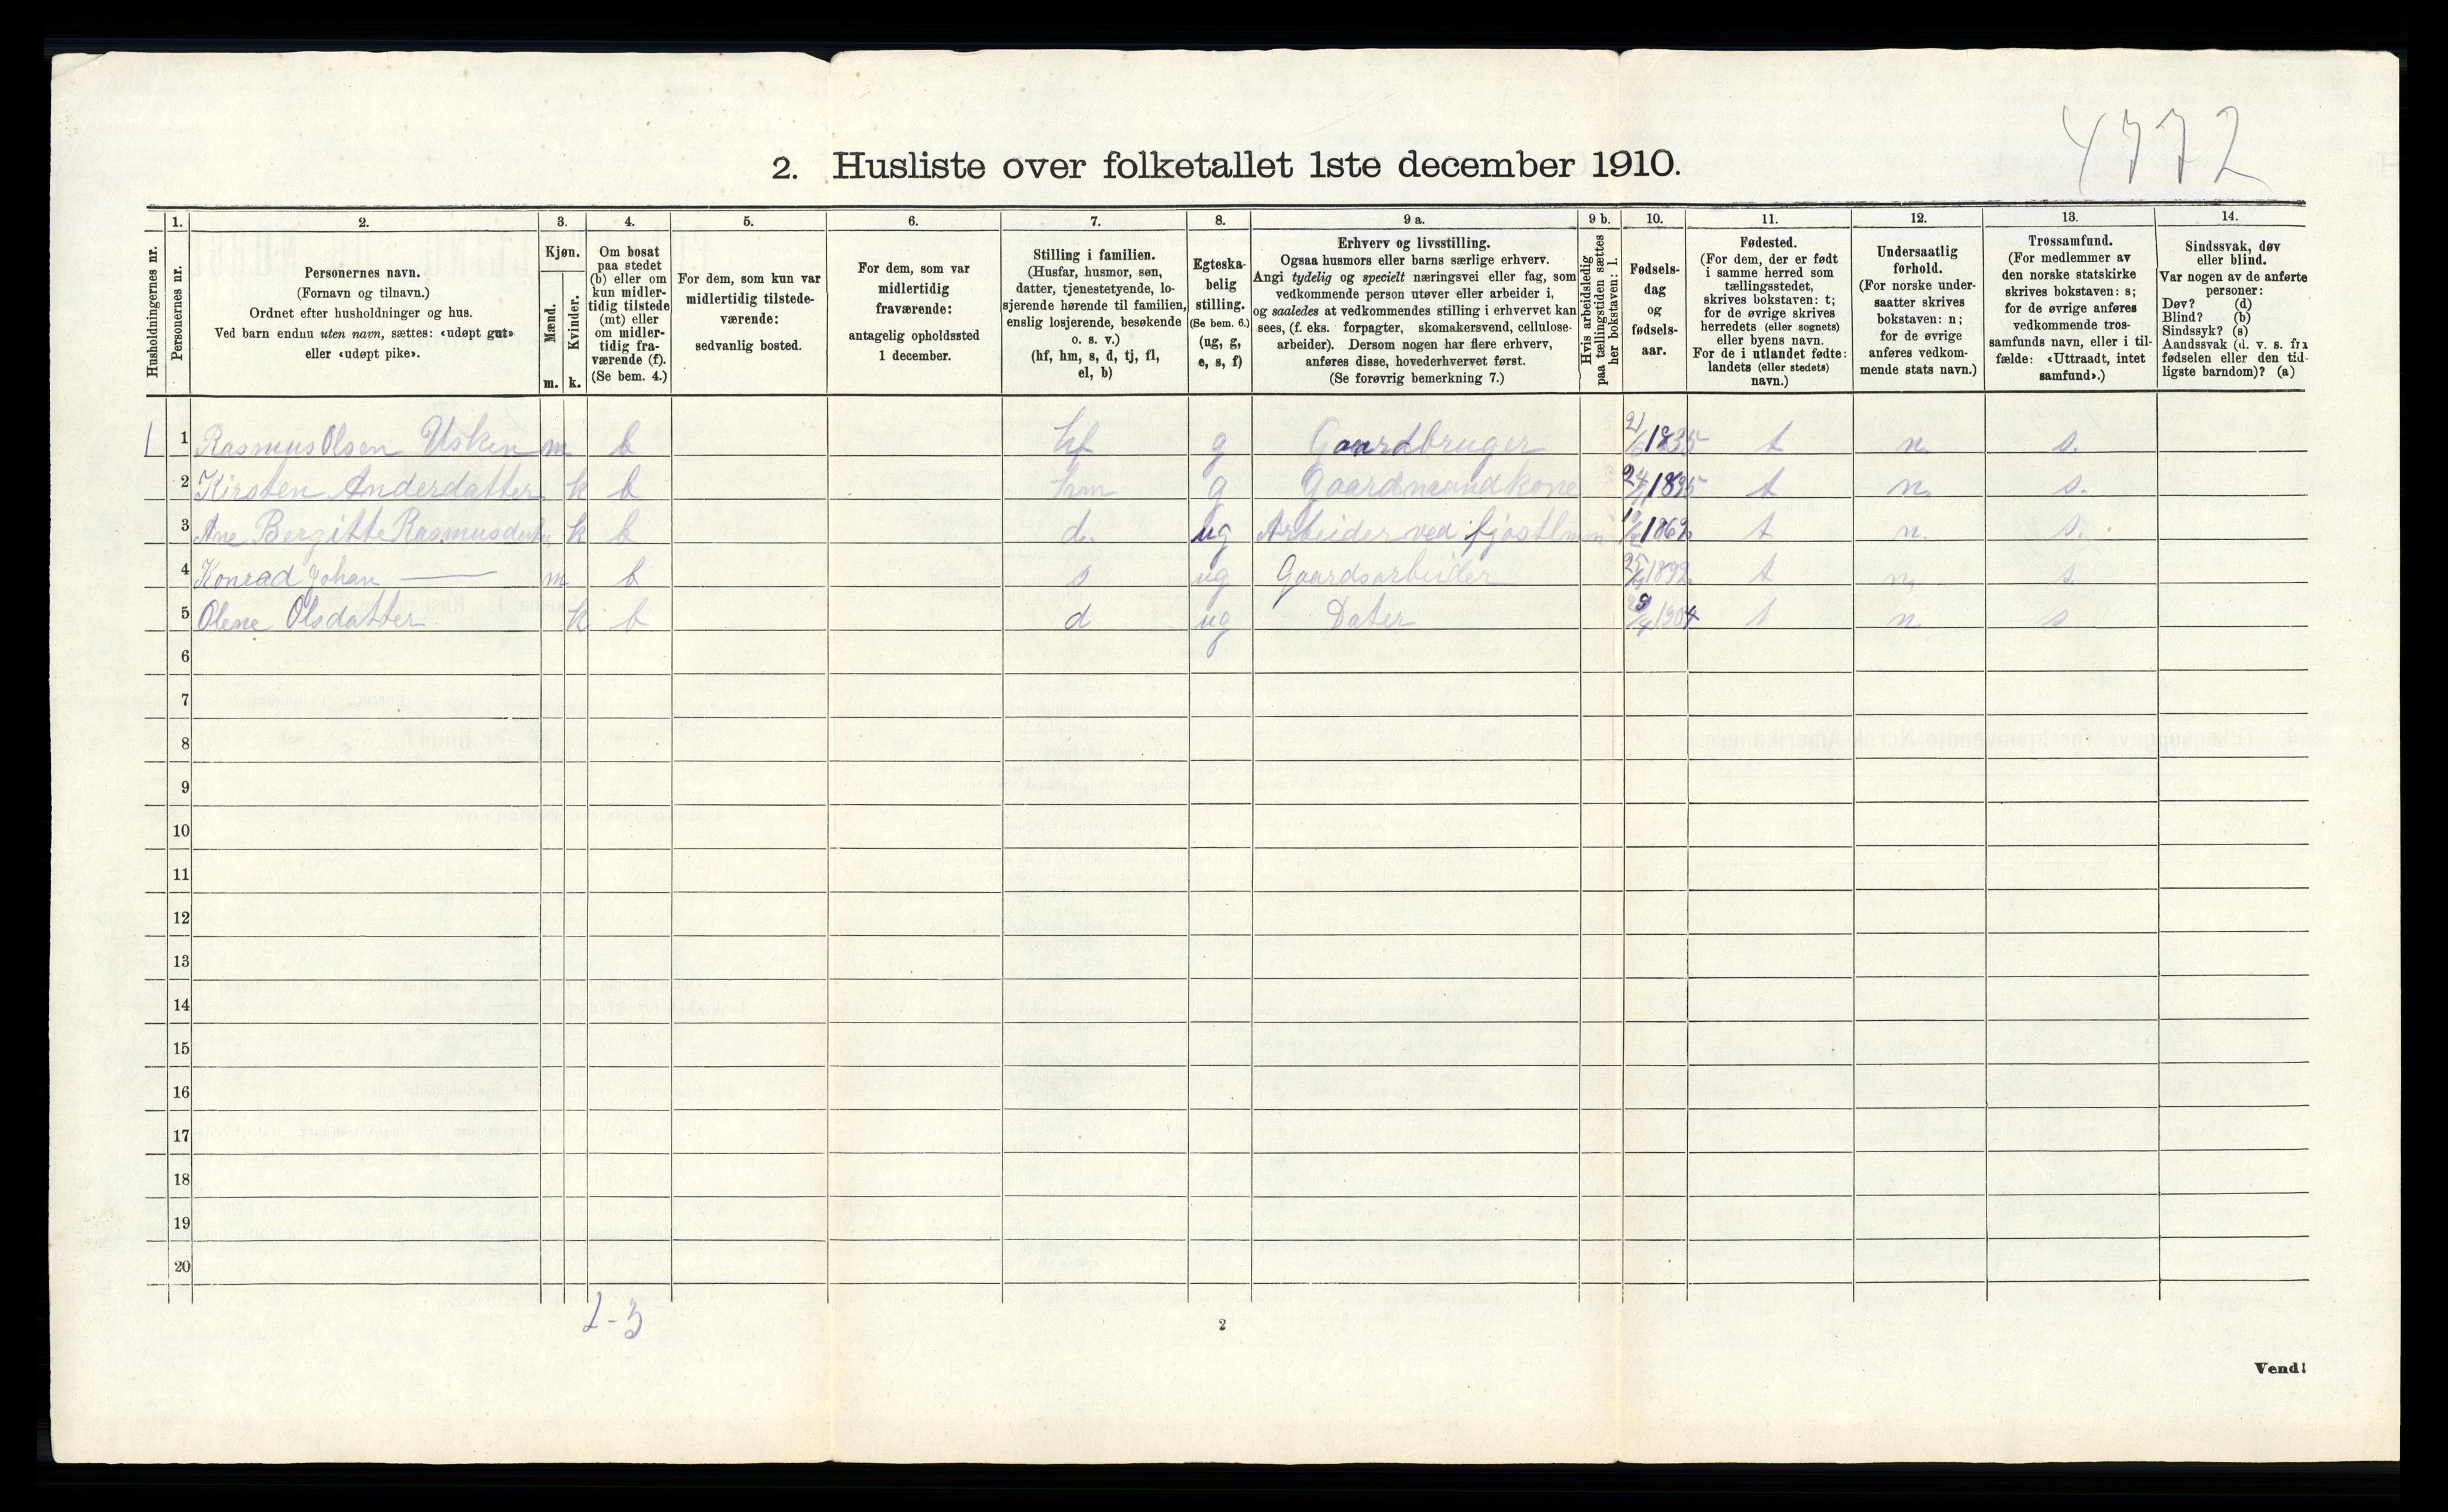 4772
2. Husliste over folketallet 1ste december 1910.
Husholdningernes nr.
1.
Personernes nr.
2.
Personernes navn.
(Fornavn og tilnavn.)
Ordnet efter husholdninger og hus.
Ved barn endnu uten navn, sættes: «udøpt gut»
eller «udøpt pike».
3.
Kjøn.
Mænd.
Kvinder.
m. k.
4.
Om bosat
paa stedet
(b) eller om
kun midler-
tidig tilstede
(mt) eller
om midler-
tidig fra-
værende (f).
(Se bem. 4.)
5.
For dem, som kun var
midlertidig tilstede-
værende:
sedvanlig bosted.
6.
For dem, som var
midlertidig
fraværende:
antagelig opholdssted
1 december.
7.
Stilling i familien.
(Husfar, husmor, søn,
datter, tjenestetyende, lo-
sjerende hørende til familien,
enslig losjerende, besøkende
o. s. v.)
(hf, hm, s, d, tj, fl,
el, b)
8.
Egteska-
belig
stilling.
(Se bem. 6.)
(ug, g,
e, s, f)
9 a.
Erhverv og livsstilling.
Ogsaa husmors eller barns særlige erhverv.
Angi tydelig og specielt næringsvei eller fag, som
vedkommende person utøver eller arbeider i,
og saaledes at vedkommendes stilling i erhvervet kan
sees, (f. eks. forpagter, skomakersvend, cellulose-
arbeider). Dersom nogen har flere erhverv,
anføres disse, hovederhvervet først.
(Se forøvrig bemerkning 7.)
9 b.
Hvis arbeidsledig
paa tællingstiden sættes
her bokstaven: l.
10.
Fødsels-
dag
og
fødsels-
aar.
11.
Fødested.
(For dem, der er født
i samme herred som
tællingsstedet,
skrives bokstaven: t;
for de øvrige skrives
herredets (eller sognets)
eller byens navn.
For de i utlandet fødte:
landets (eller stedets)
navn.)
12.
Undersaatlig
forhold.
(For norske under-
saatter skrives
bokstaven: n;
for de øvrige
anføres vedkom-
mende stats navn.)
13.
Trossamfund.
(For medlemmer av
den norske statskirke
skrives bokstaven: s;
for de øvrige anføres
vedkommende tros-
samfunds navn, eller i til-
fælde: «Uttraadt, intet
samfund».)
14.
Sindssvak, døv
eller blind.
Var nogen av de anførte
personer:
Døv? (d)
Blind? (b)
Sindssyk? (s)
Aandssvak (d. v. s. fra
fødselen eller den tid-
ligste barndom)? (a)
1 Rasmus Olsen Usken m b hf g Gaardbruger 21/6 1835 t n. s.
2 Kirsten Anderdatter k b hm g Gaardmandkone 1835 t n. s.
3 Ane Bergitte k b d. ug Arbeider ved t n. s.
4 Konrad Johan — m b s ug Gaardsarbeider 1892 t n, s
5 Olene Olsdatter k b d ug Dater 1904 t n s
6
7
8
9
10
11
12
13
14
15
16
17
18
19
20
2-3
2
Vend!